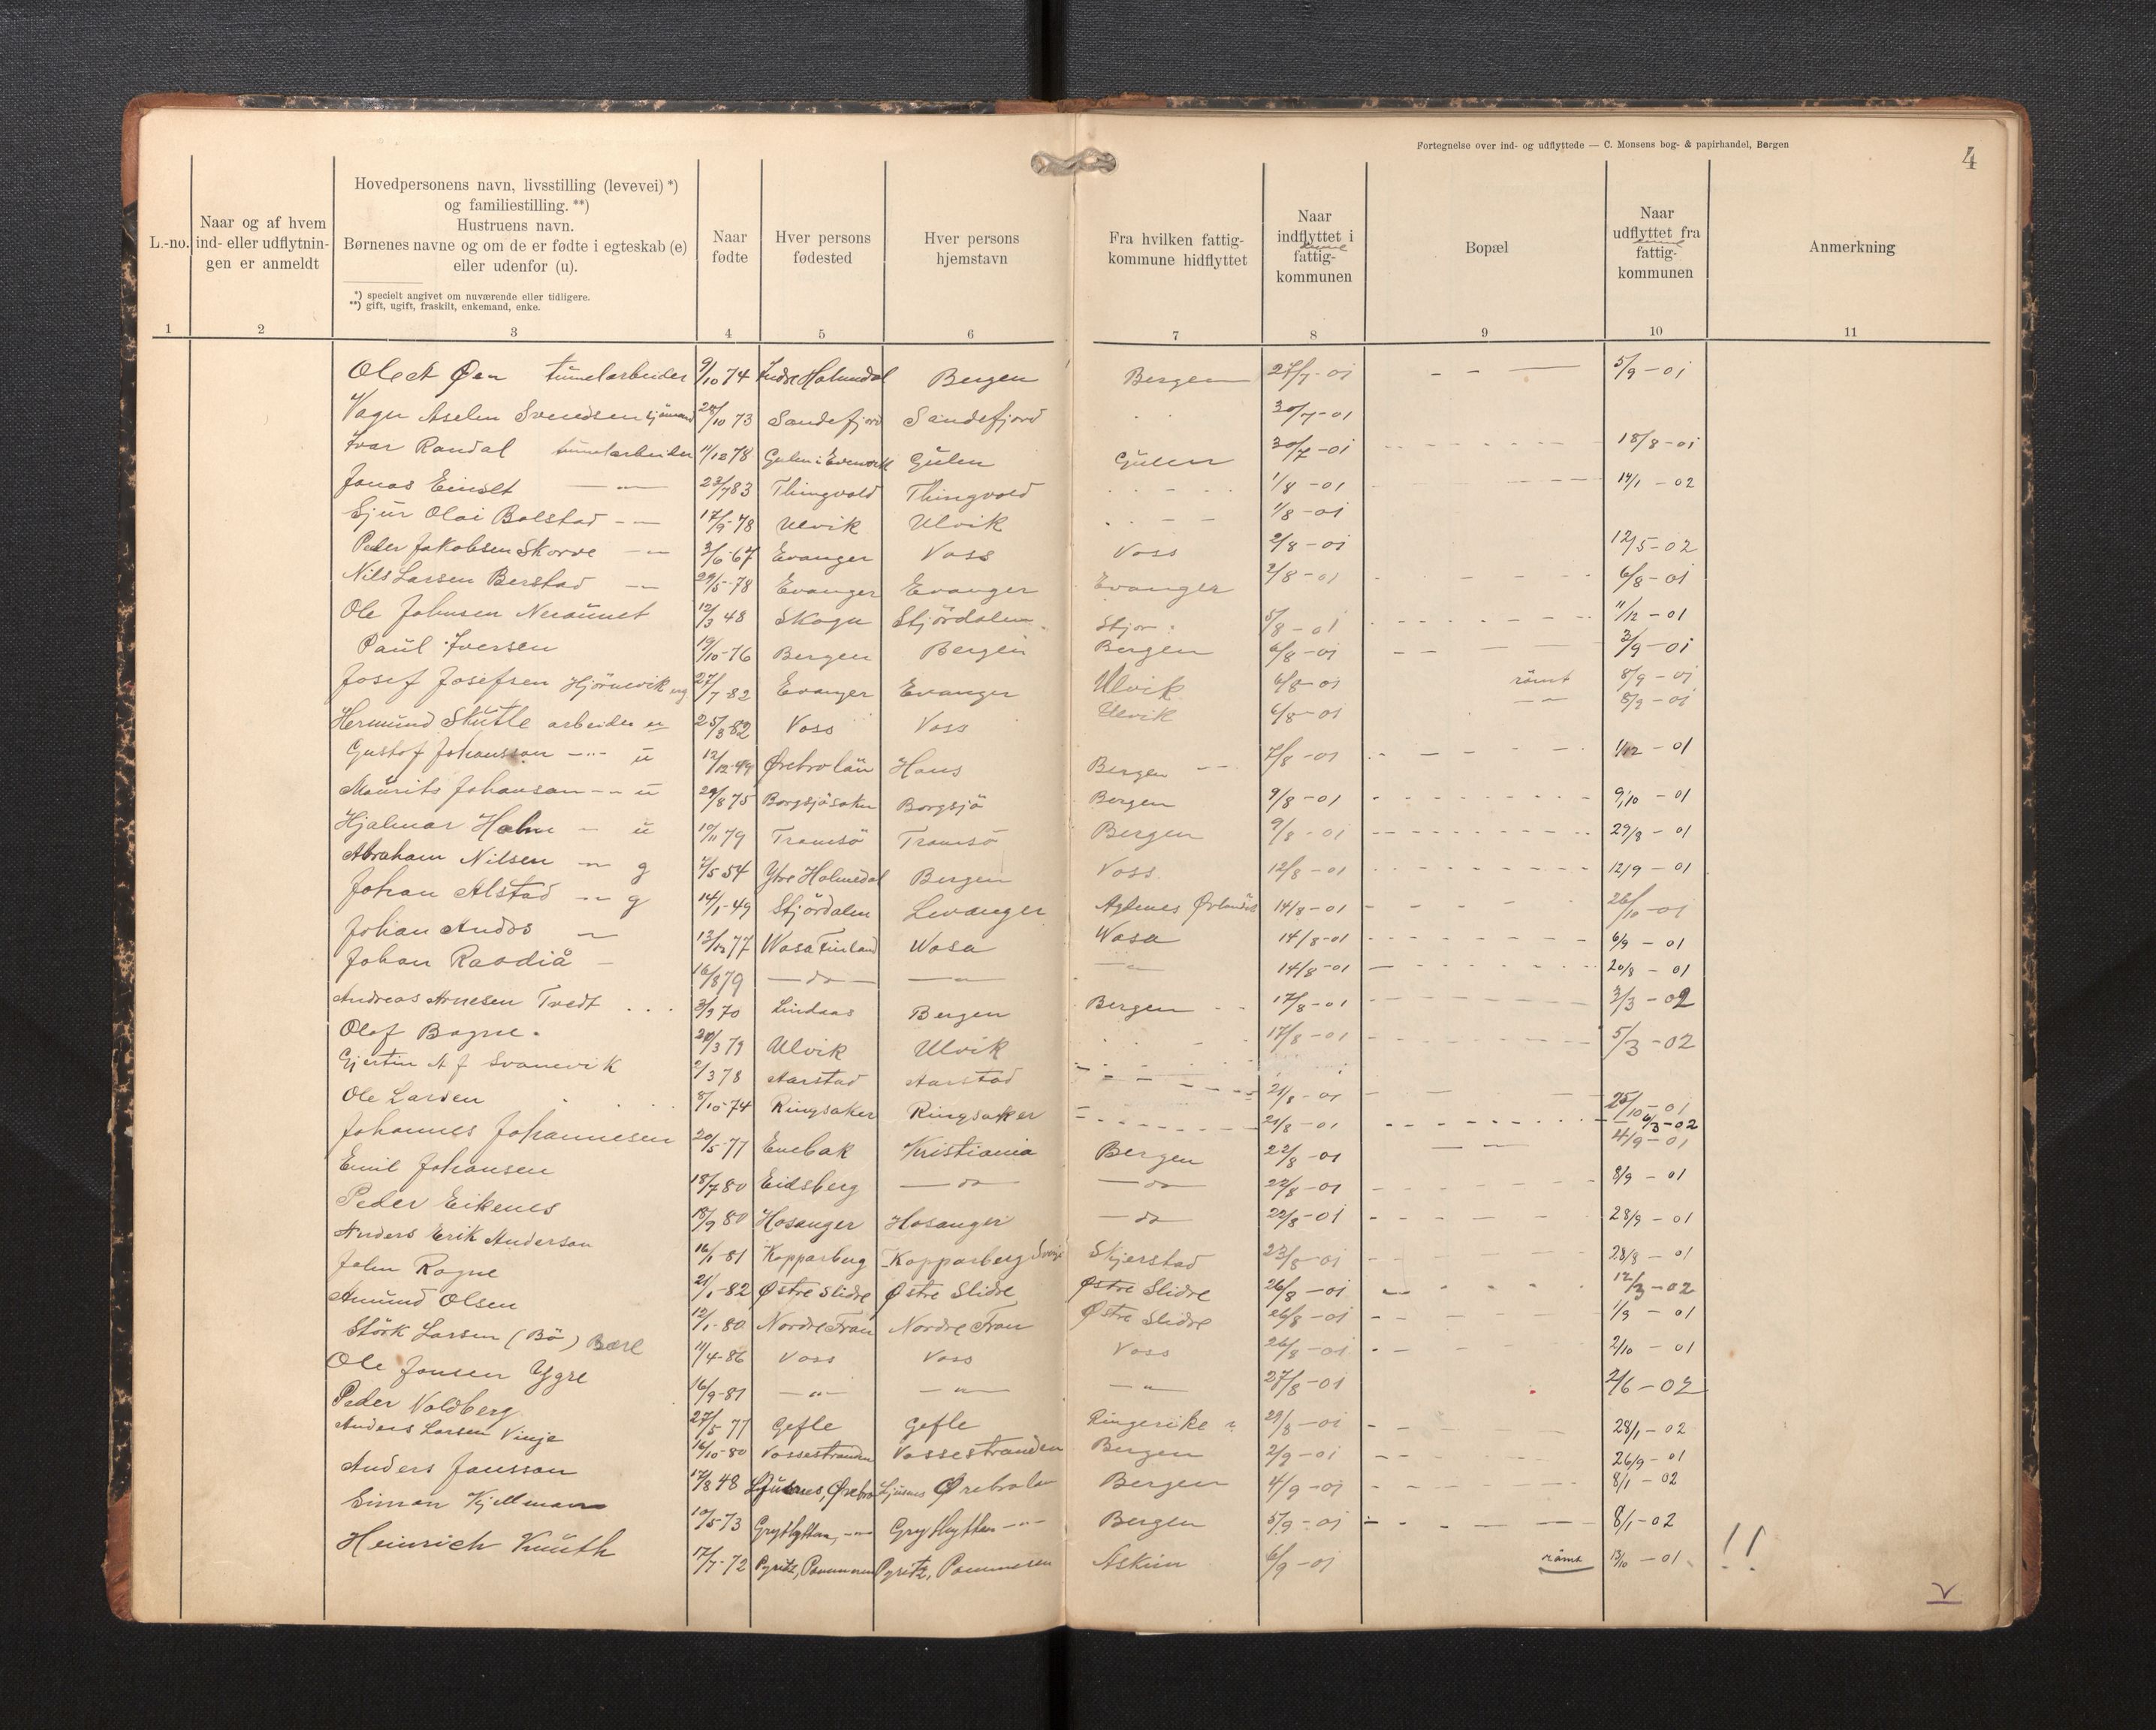 Fortegnelse over ind- og udflyttede — C. Monsens bog- & papirhandel, Bergen
4
L.-no.
Naar og af hvem ind- eller udflytnin- gen er anmeldt
Hovedpersonens navn, livsstilling (levevei) *) og familiestilling. **) Hustruens navn. Børnenes navne og om de er fødte i egteskab (e) eller udenfor (u).
*) specielt angivet om nuværende eller tidligere.
**) gift, ugift, fraskilt, enkemand, enke.
Naar fødte
Hver persons fødested
Hver persons hjemstavn
Fra hvilken fattig- kommune hidflyttet
Naar indflyttet i fattig- kommunen
Bopæl
Naar udflyttet fra fattig- kommunen
Anmerkning
1 2 3 4 5 6 7 8 9 10 11
Ole A Øen tunnelarbeider 9/10 74 Indre Bergen Bergen 27/7-01 — 5/9-01
Svendsen sjömand 28/10 73 Sandefjord Sandefjord 30/7-01
Ivar Randal tunnelarbeider 11/12 78 Gulen Gulen 30/7-01 18/8-01
Jonas —"— 23/7 83 Thingvold Thingvold 1/8-01 14/1-02
Sjur Olai Bolstad —"— 17/9-78 Ulvik Ulvik 1/8-01
Peder Jakobsen Skorve —"— 3/6-67 Evanger Voss Voss 2/8-01 12/5-02
Nils Larsen Berstad —"— 29/5-78 Evanger Evanger Evanger 2/8-01 6/8-01
Ole Johnsen 12/3 48 Skogn Stjördalen Stjör. 5/8-01 11/12-01
Paul Iversen 19/10-76 Bergen Bergen Bergen 6/8-01 3/9-01
Josef Josefsen Hjörnevik ug 27/7 82 Evanger Evanger Ulvik 6/8-01 römt 8/9-01
Hermund Skutle arbeider 25/8 82 Voss Voss Ulvik 6/8-01 —"— 8/9-01
Gustof Johansson —"— u 12/12-49 Ørebro län Bergen 7/8-01 1/12-01
Maurits Johansan —"— u 29/8 75 Borgsjösokn Borgsjö Bergen 9/8-01 9/10-01
Hjalmar Holm —"— u 10/11 79 Tromsö Tromsö Bergen 9/8-01 29/8-01
Abraham Nilsen —"— g 7/5 54 Ytre Holmedal Bergen Voss 12/8-01 12/9-01
Johan Alstad —"— g 14/1-49 Stjördalen Levanger Agdenes 14/8-01 26/10-01
Johan —"— 13/12 77 Wasa Finland Wasa Wasa 14/8-01 6/9-01
Johan 16/8 79 —do— —"— —"— 14/8-01 20/8-01
Andreas Arnesen Tvedt 3/9 70 Lindaas Bergen Bergen 17/8-01 3/3-02
Olof Bagne 20/3 79 Ulvik Ulvik 17/8-01 5/3-02
Gjertin A f Svanevik 2/3 78 Aarstad Aarstad 21/8-01 25/10-01
Ole Larsen 8/10-74 Ringsaker Ringsaker 21/8-01 6/3-02
Johannes Johannesen 20/5-77 Enebak Kristiania Bergen 22/8-01 4/9-01
Emil Johansen 18/7 80 Eidsberg —do— —do— 22/8-01 8/9-01
Peder Eikenes 18/9 80 Hosanger Hosanger —do— 22/8-01 28/9-01
Anders Erik Anderson 16/1-81 Kopparberg Kopparberg Sverige Skjerstad 23/8-01 28/8-01
John Rogne 21/1-82 Østre Slidre Østre Slidre Østre Slidre 26/8-01 12/3-02
Amund Olsen 12/1-80 Nordre Fron Nordre Fron Østre Slidre 26/8-01 1/9-01
Störk Larsen (Bö) 11/4-86 Voss Voss Voss 26/8-01 2/10-01
Ole Jonsen Ygre 16/9-81 —"— —"— —"— 27/8-01 2/6-02
Peder Voldberg 27/5 77 Gefle Gefle Ringerike 29/8-01 28/1-02
Anders Larsen Vinje 16/10-80 Vossestranden Vossestranden Bergen 2/9-01 26/9-01
Anders Jansson 17/8 48 Ljusnes, Örebro Ljusnes Ørebro län Bergen 4/9-01 8/1-02
Simon Kjellman 10/5-73 Grythyttan, —"— Grythyttan —"— Bergen 5/9-01 8/1-02
Heinrich Knuth 17/7-72 Pyritz, Pommeren Pyritz, Pommeren Askim 6/9-01 römt 13/10-01 !!
V